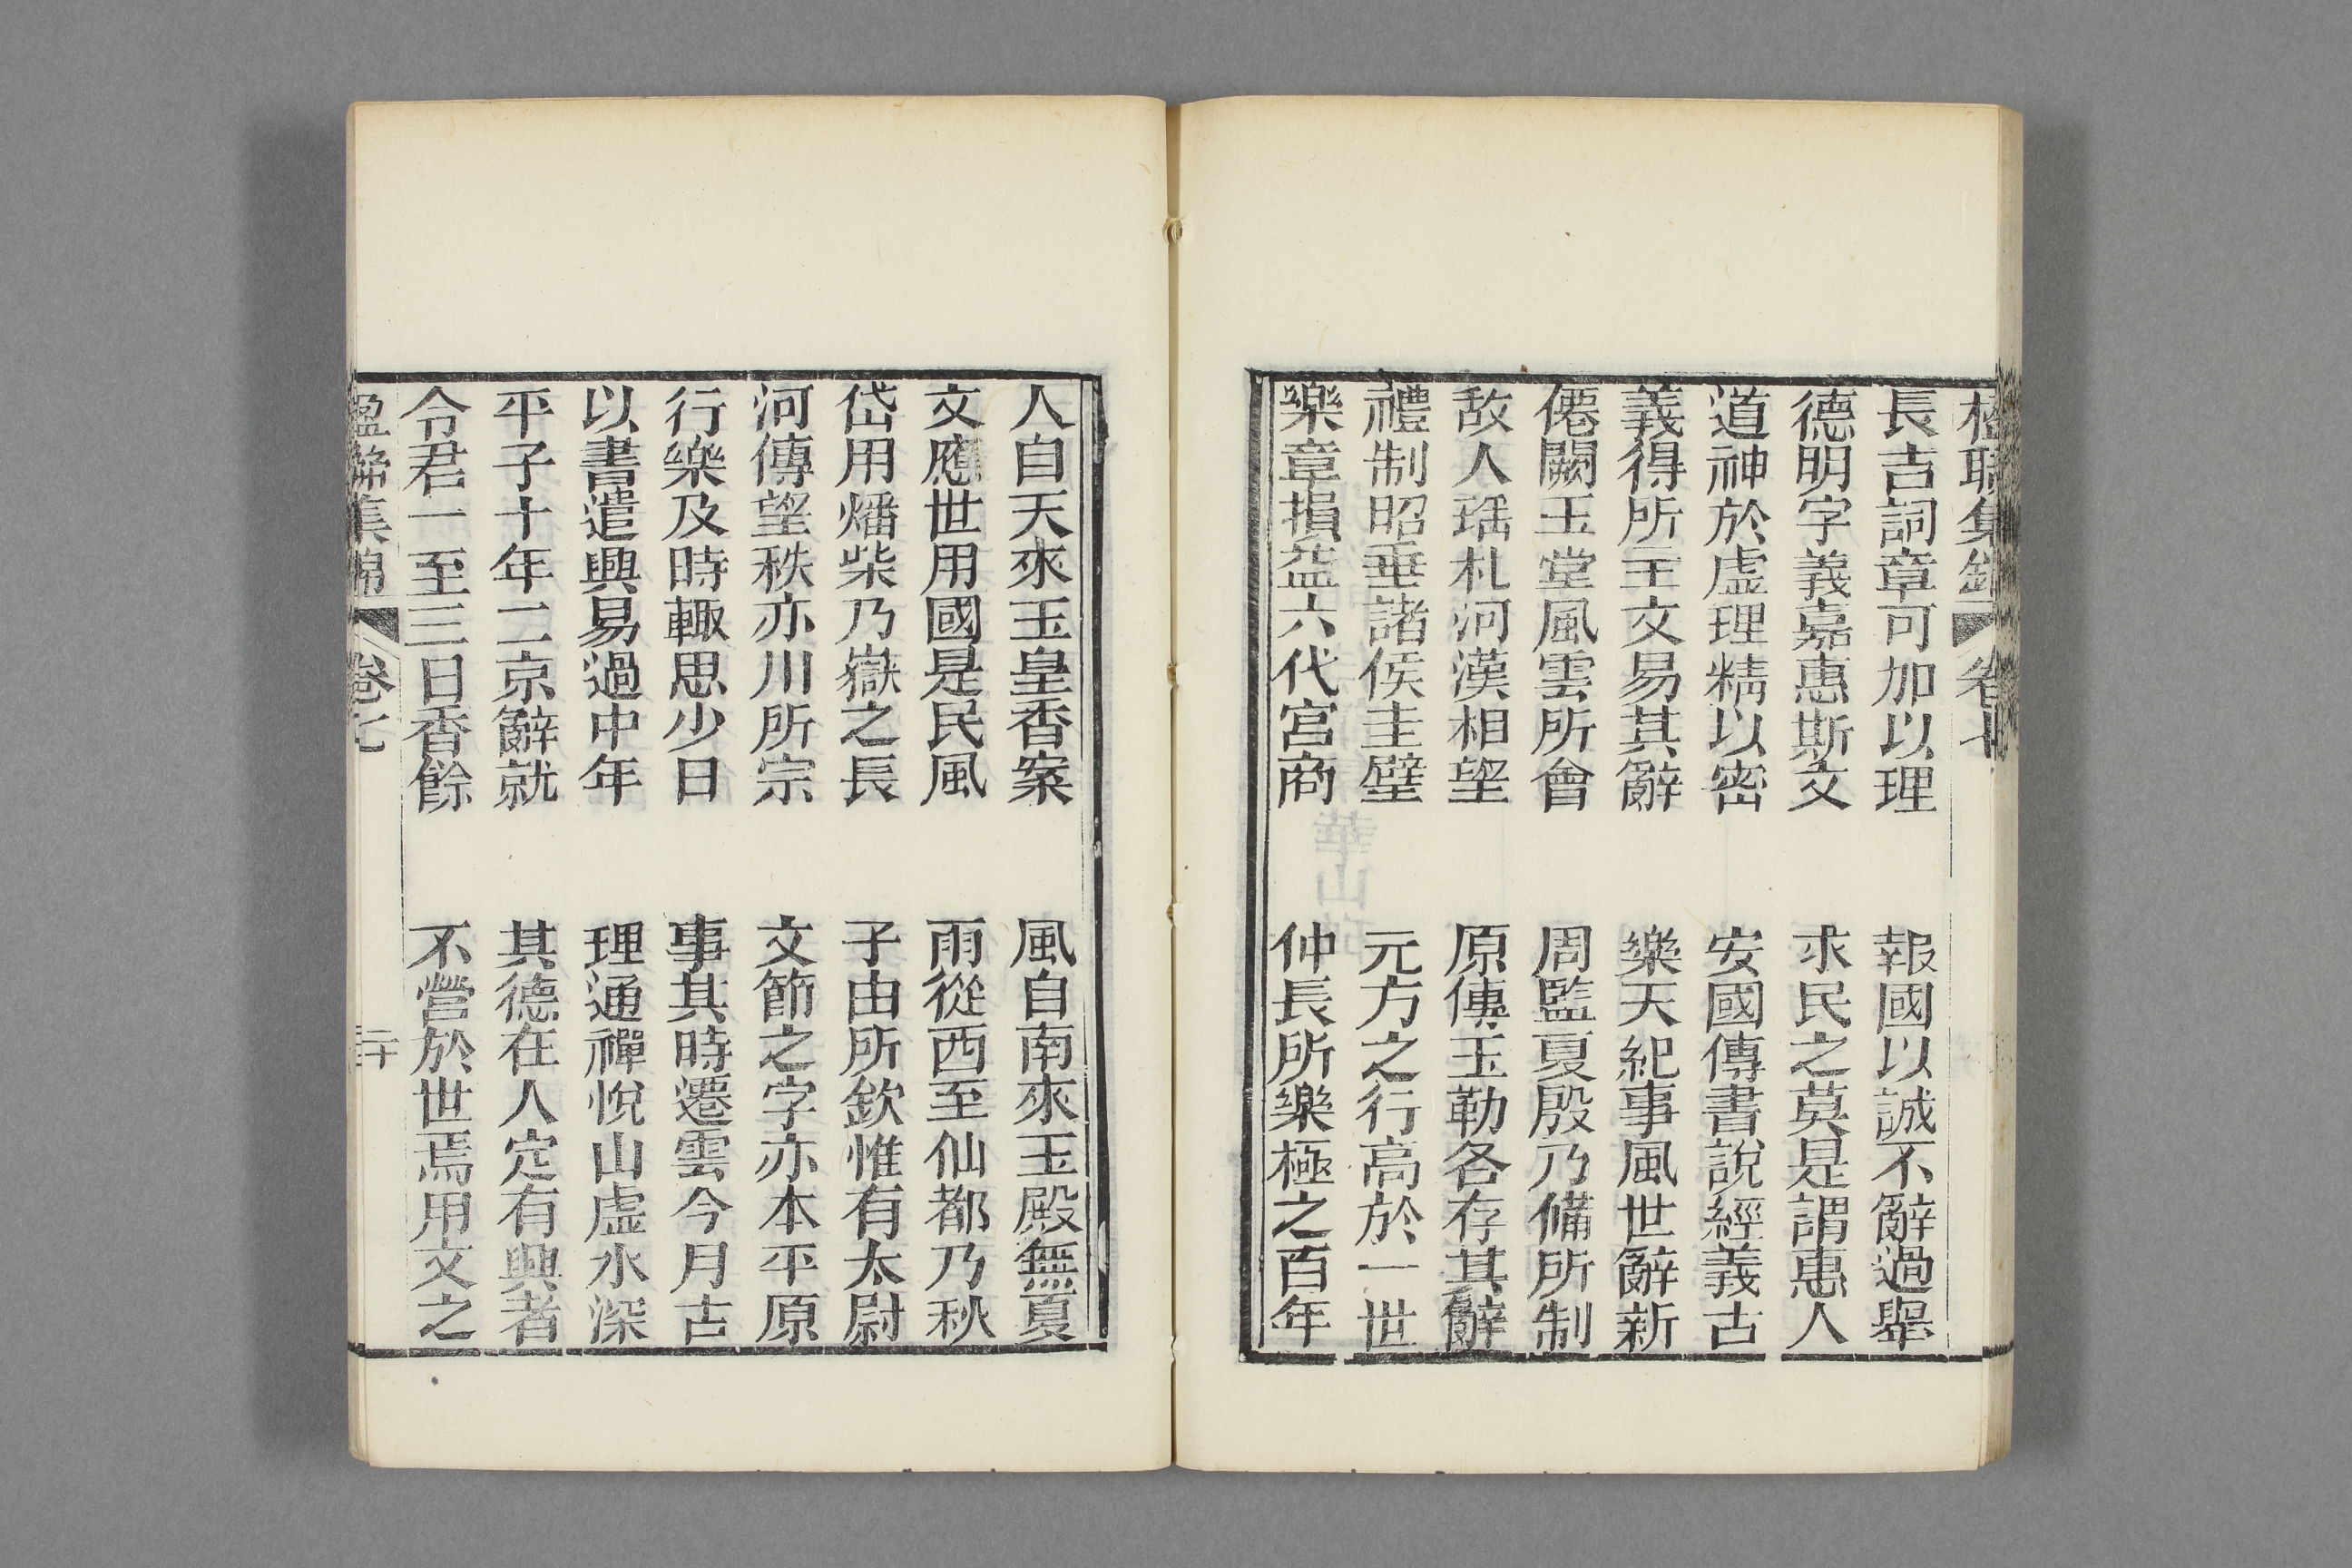 長吉詞章可加以理　報國以誠不辭過舉
德明字義嘉惠斯文　求民之莫是謂惠人
道神於虛理精以密　安國傳書說經義古
義得所主文易其辭　樂天紀事風世辭新
僊闕玉堂風雲所會　周監夏殷乃備所制
敌人瑤札河漢相望　原傳玉勒各存其辭
禮制昭垂諸侯圭璧　元方之行高於一世
樂章損益六代宮商　仲長所樂極之百年
人自天來玉皇香案　風自南來玉殿無夏
文應世用國是民風　雨從西至仙都乃秋
岱用燔柴乃嶽之長　子由所欽惟有太尉
河傳望秩亦川所宗　文節之字亦本平原
行樂及時輙思少日　事其時遷雲今月古
以書遣興易過中年　理通禪悅山虛水深
平子十年二京辭就　其德在人定有興者
令君一至三日香餘　不營於世焉用文之
集錦　卷七　二十